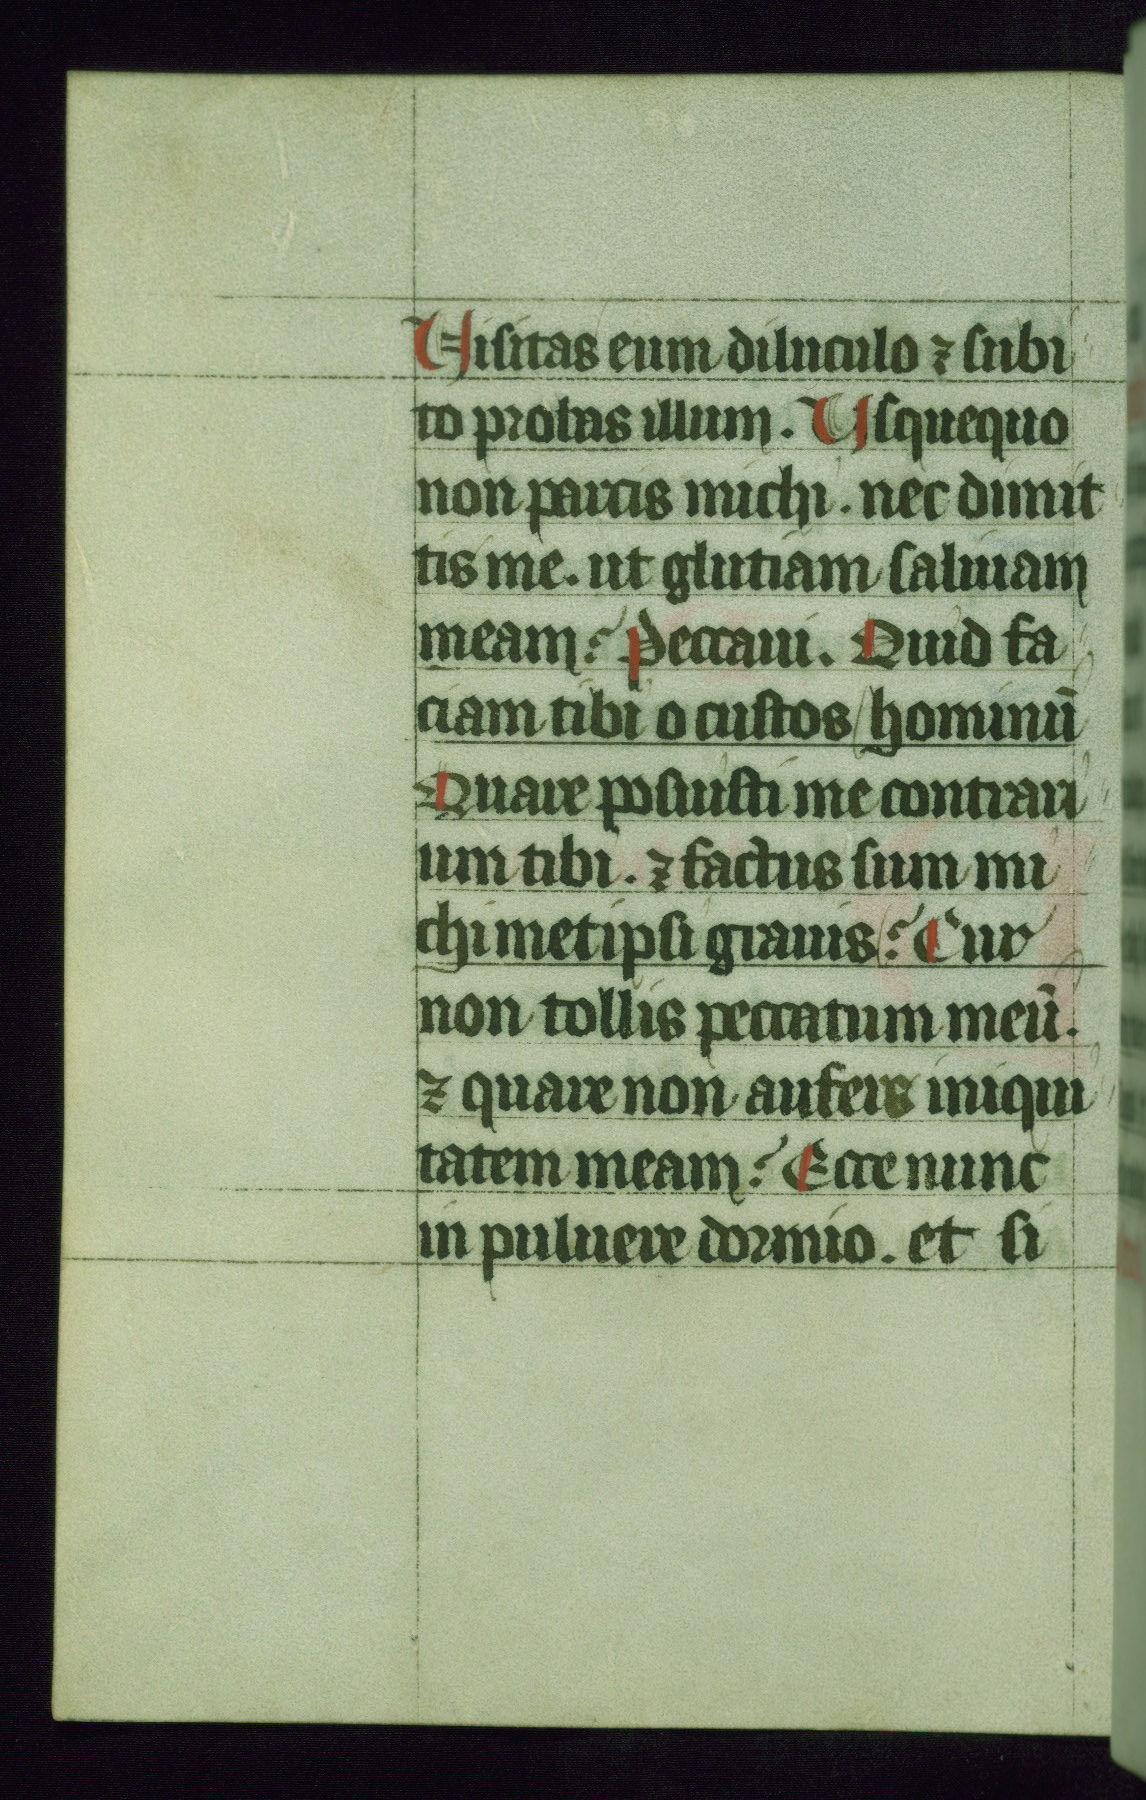 Uisitas eum diluculo ⁊ subi
to probas illum. Usquequo
non parcis michi. nec dimit
tis me. ut glutiam saliuam
meam? Peccaui. Quid fa
ciam tibi o custos hominū
Quare posuisti me contrari
um tibi. ⁊ factus sum mi
chimetipsi grauis? Cur
non tollis peccatum meū.
⁊ quare non aufers iniqui
tatem meam? Ecce nunc
in puluere dormio. et si